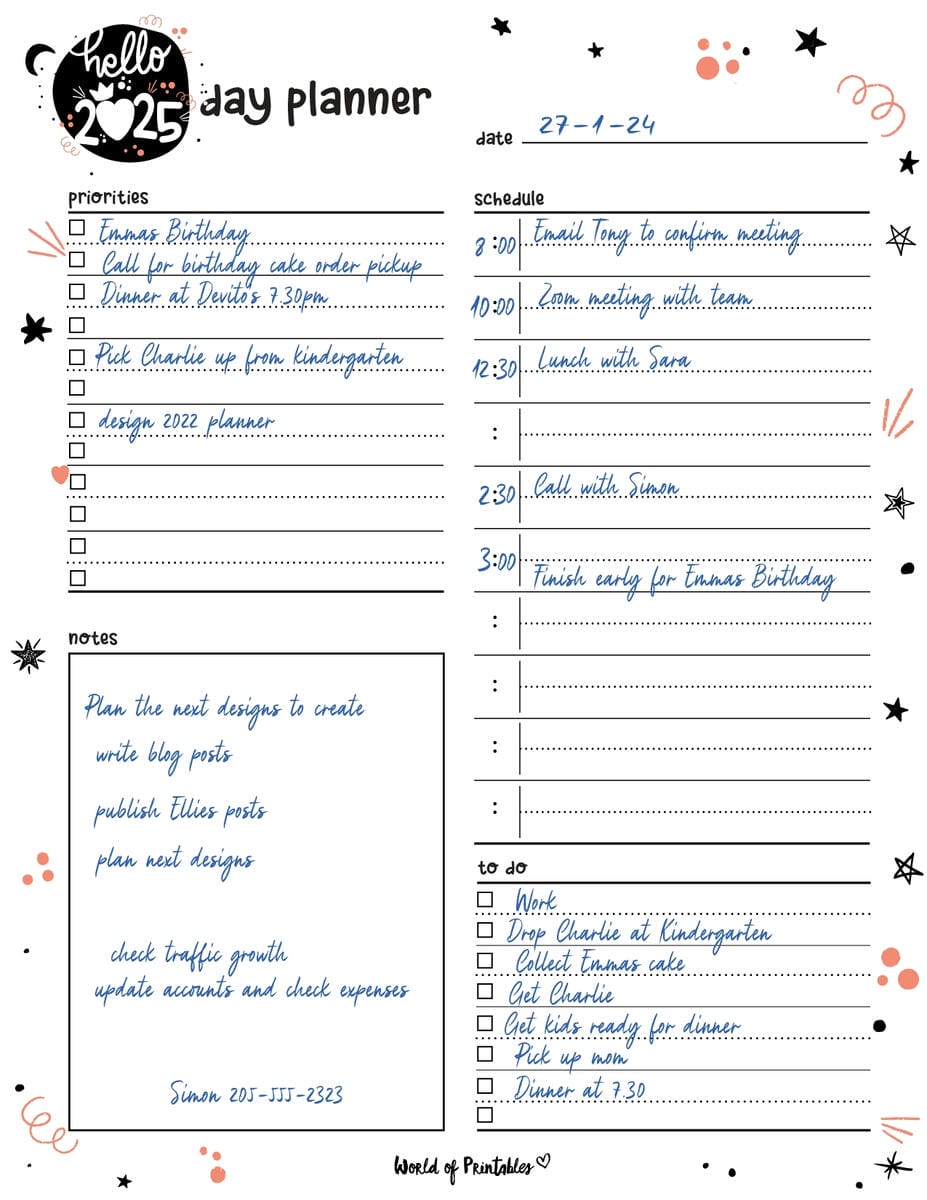 hello
2025
day planner
date 27-1-24
priorities
Emmas Birthday
Call for birthday cake order pickup
Dinner at Devito's 7.30pm
Pick Charlie up from kindergarten
design 2022 planner
notes
Plan the next designs to create
write blog posts
publish Ellies posts
plan next designs
check traffic growth
update accounts and check expenses
Simon 205-555-2323
schedule
8:00 Email Tony to confirm meeting
10:00 Zoom meeting with team
12:30 Lunch with Sara
:
2:30 Call with Simon
3:00 Finish early for Emmas Birthday
:
:
:
:
to do
Work
Drop Charlie at Kindergarten
Collect Emmas cake
Get Charlie
Get kids ready for dinner
Pick up mom
Dinner at 7.30
World of Printables